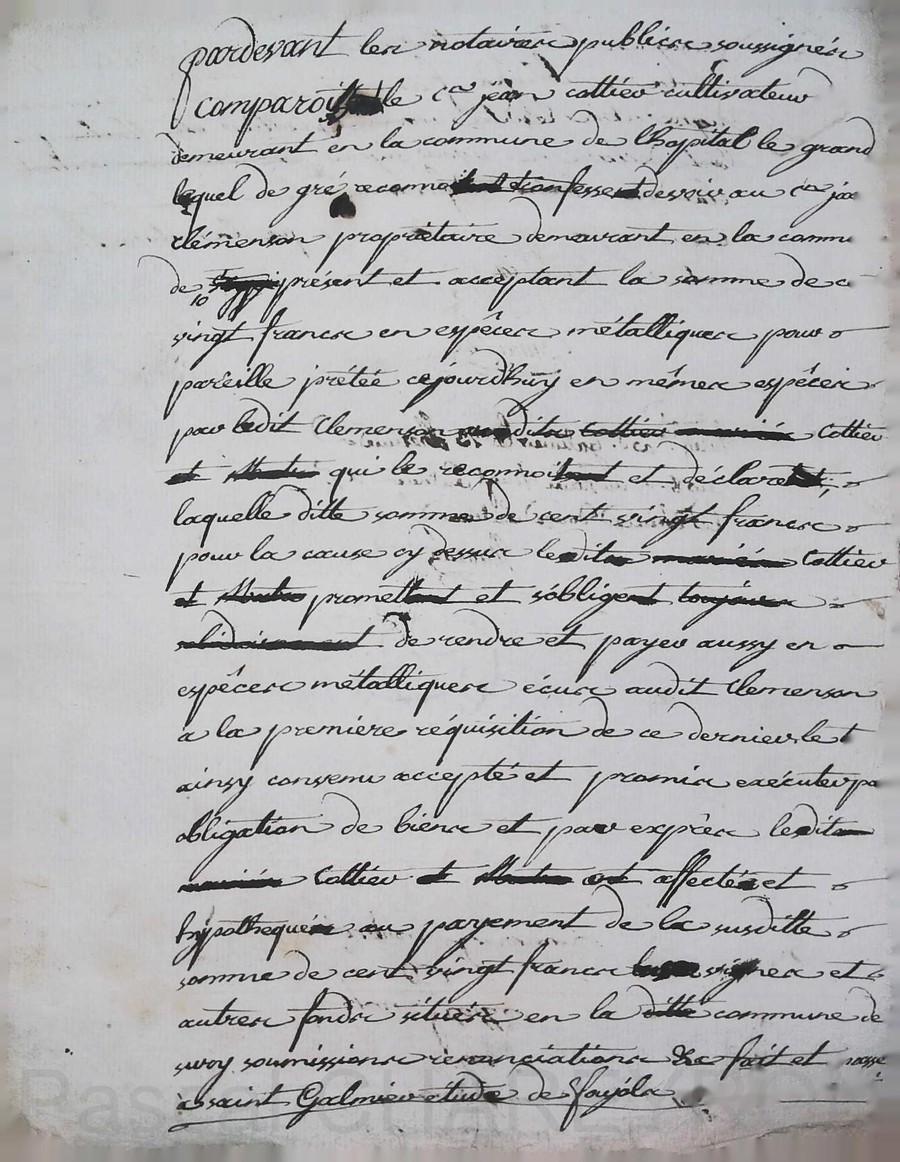 pardevant les notaires publics soussignés
comparoit le cn jean cottier cultivateur
demeurant en la commune de lhopital le grand
lequel de gré reconnoit devoir au cn
clémenson propriétaire demeurant en la commu
de présent et acceptant la somme de c
vingt francs en espêces métalliques pour
pareille prétée cejourdhuy en mêmes espêces
par ledit Clemenson audit Cottier
qui le reconnoit et déclare
laquelle ditte somme de cent vingt francs
pour la cause cy dessus ledit Cottier
promet et s'oblige
de rendre et payer aussy en
espêces métalliques écus audit Clemenson
a la première réquisition de ce dernier le t
ainsy convenu accepté et promis exécuter pa
obligation de biens et par exprès ledit
Cottier a affecté et
hypothequé au payement de la susditte
somme de cent vingt francs vignes et
autres fonds situés en la ditte commune de
sury soumissions renonciations &c fait et passé
a saint Galmier etude de